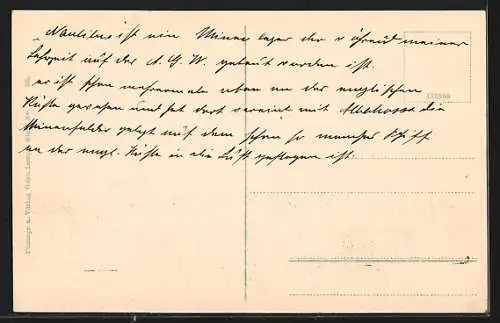 „Nautilus ist ein Minenleger der während meiner
Lehrzeit auf der A.G.W. gebaut worden ist.
er ist schon mehreremale oben an der englischen
Küste gewesen und hat dort vereint mit Albatross die
Minenfelder gelegt auf dem schon so mancher Schiff
an der engl. Küste in die Luft geflogen ist.